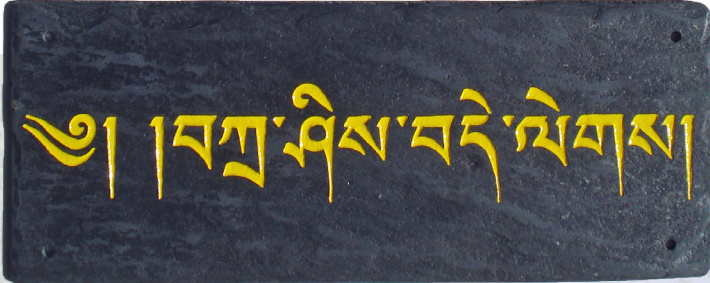 ༄། །བཀྲ་ཤིས་བདེ་ལེགས།